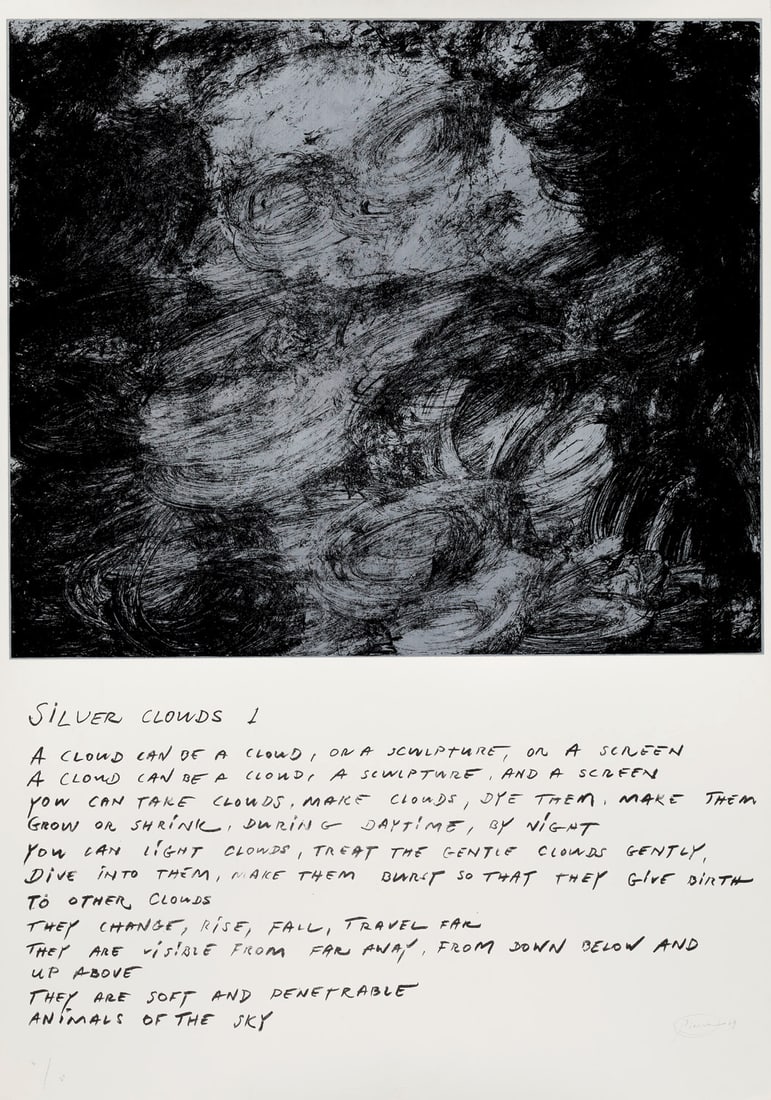 SILVER CLOUDS 1
A CLOUD CAN BE A CLOUD, OR A SCULPTURE, OR A SCREEN
A CLOUD CAN BE A CLOUD, A SCULPTURE, AND A SCREEN
YOU CAN TAKE CLOUDS, MAKE CLOUDS, DYE THEM, MAKE THEM
GROW OR SHRINK, DURING DAYTIME, BY NIGHT
YOU CAN LIGHT CLOUDS, TREAT THE GENTLE CLOUDS GENTLY,
DIVE INTO THEM, MAKE THEM BURST SO THAT THEY GIVE BIRTH
TO OTHER CLOUDS
THEY CHANGE, RISE, FALL, TRAVEL FAR
THEY ARE VISIBLE FROM FAR AWAY, FROM DOWN BELOW AND
UP ABOVE
THEY ARE SOFT AND PENETRABLE
ANIMALS OF THE SKY